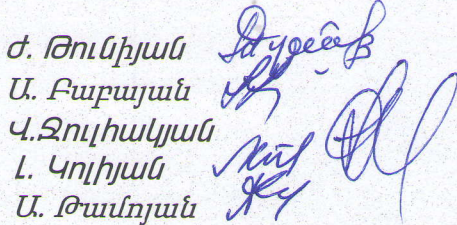 Ժ. Թունիյան
Ա. Բաբայան
Վ.Զուլհակյան
Լ. Կոլիյան
Ա. Թամոյան